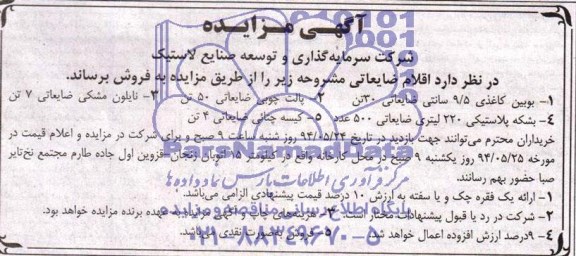 آگهی مزایده
شرکت سرمایه‌گذاری و توسعه صنایع لاستیک
در نظر دارد اقلام ضایعاتی مشروحه زیر را از طریق مزایده به فروش برساند.
۱- بوبین کاغذی ۹/۵ سانتی ضایعاتی ۳۰تن ۲- پالت چوبی ضایعاتی ۵۰ تن ۳- نایلون مشکی ضایعاتی ۷ تن
۴- بشکه پلاستیکی ۲۲۰ لیتری ضایعاتی ۵۰۰ عدد ۵- کیسه چتائی ضایعاتی ۴ تن
خریداران محترم می‌توانند جهت بازدید در تاریخ ۹۴/۰۵/۲۴ روز شنبه ساعت ۹ صبح و برای شرکت در مزایده و اعلام قیمت در
مورخه ۹۴/۰۵/۲۵ روز یکشنبه ۹ صبح در محل کارخانه واقع در کیلومتر ۱۵ اتوبان زنجان-قزوین اول جاده طارم مجتمع نخ‌تایر
صبا حضور بهم رسانند.
ParsNamadData
مرکز فرآوری اطلاعات پارس نماد داده ها
۱- ارائه یک فقره چک و یا سفته به ارزش ۱۰ درصد قیمت پیشنهادی الزامی می‌باشد.
۲- شرکت در رد یا قبول پیشنهادات مختار است. ۳- هزینه‌های چاپ آگهی مزایده به عهده برنده مزایده خواهد بود.
پایگاه اطلاع رسانی مناقصه و مزایده
۴- ۹درصد ارزش افزوده اعمال خواهد شد. ۵- فروش به‌صورت نقدی می‌باشد.
۰۲۱-۸۸۳۴۹۶۷۰-۵